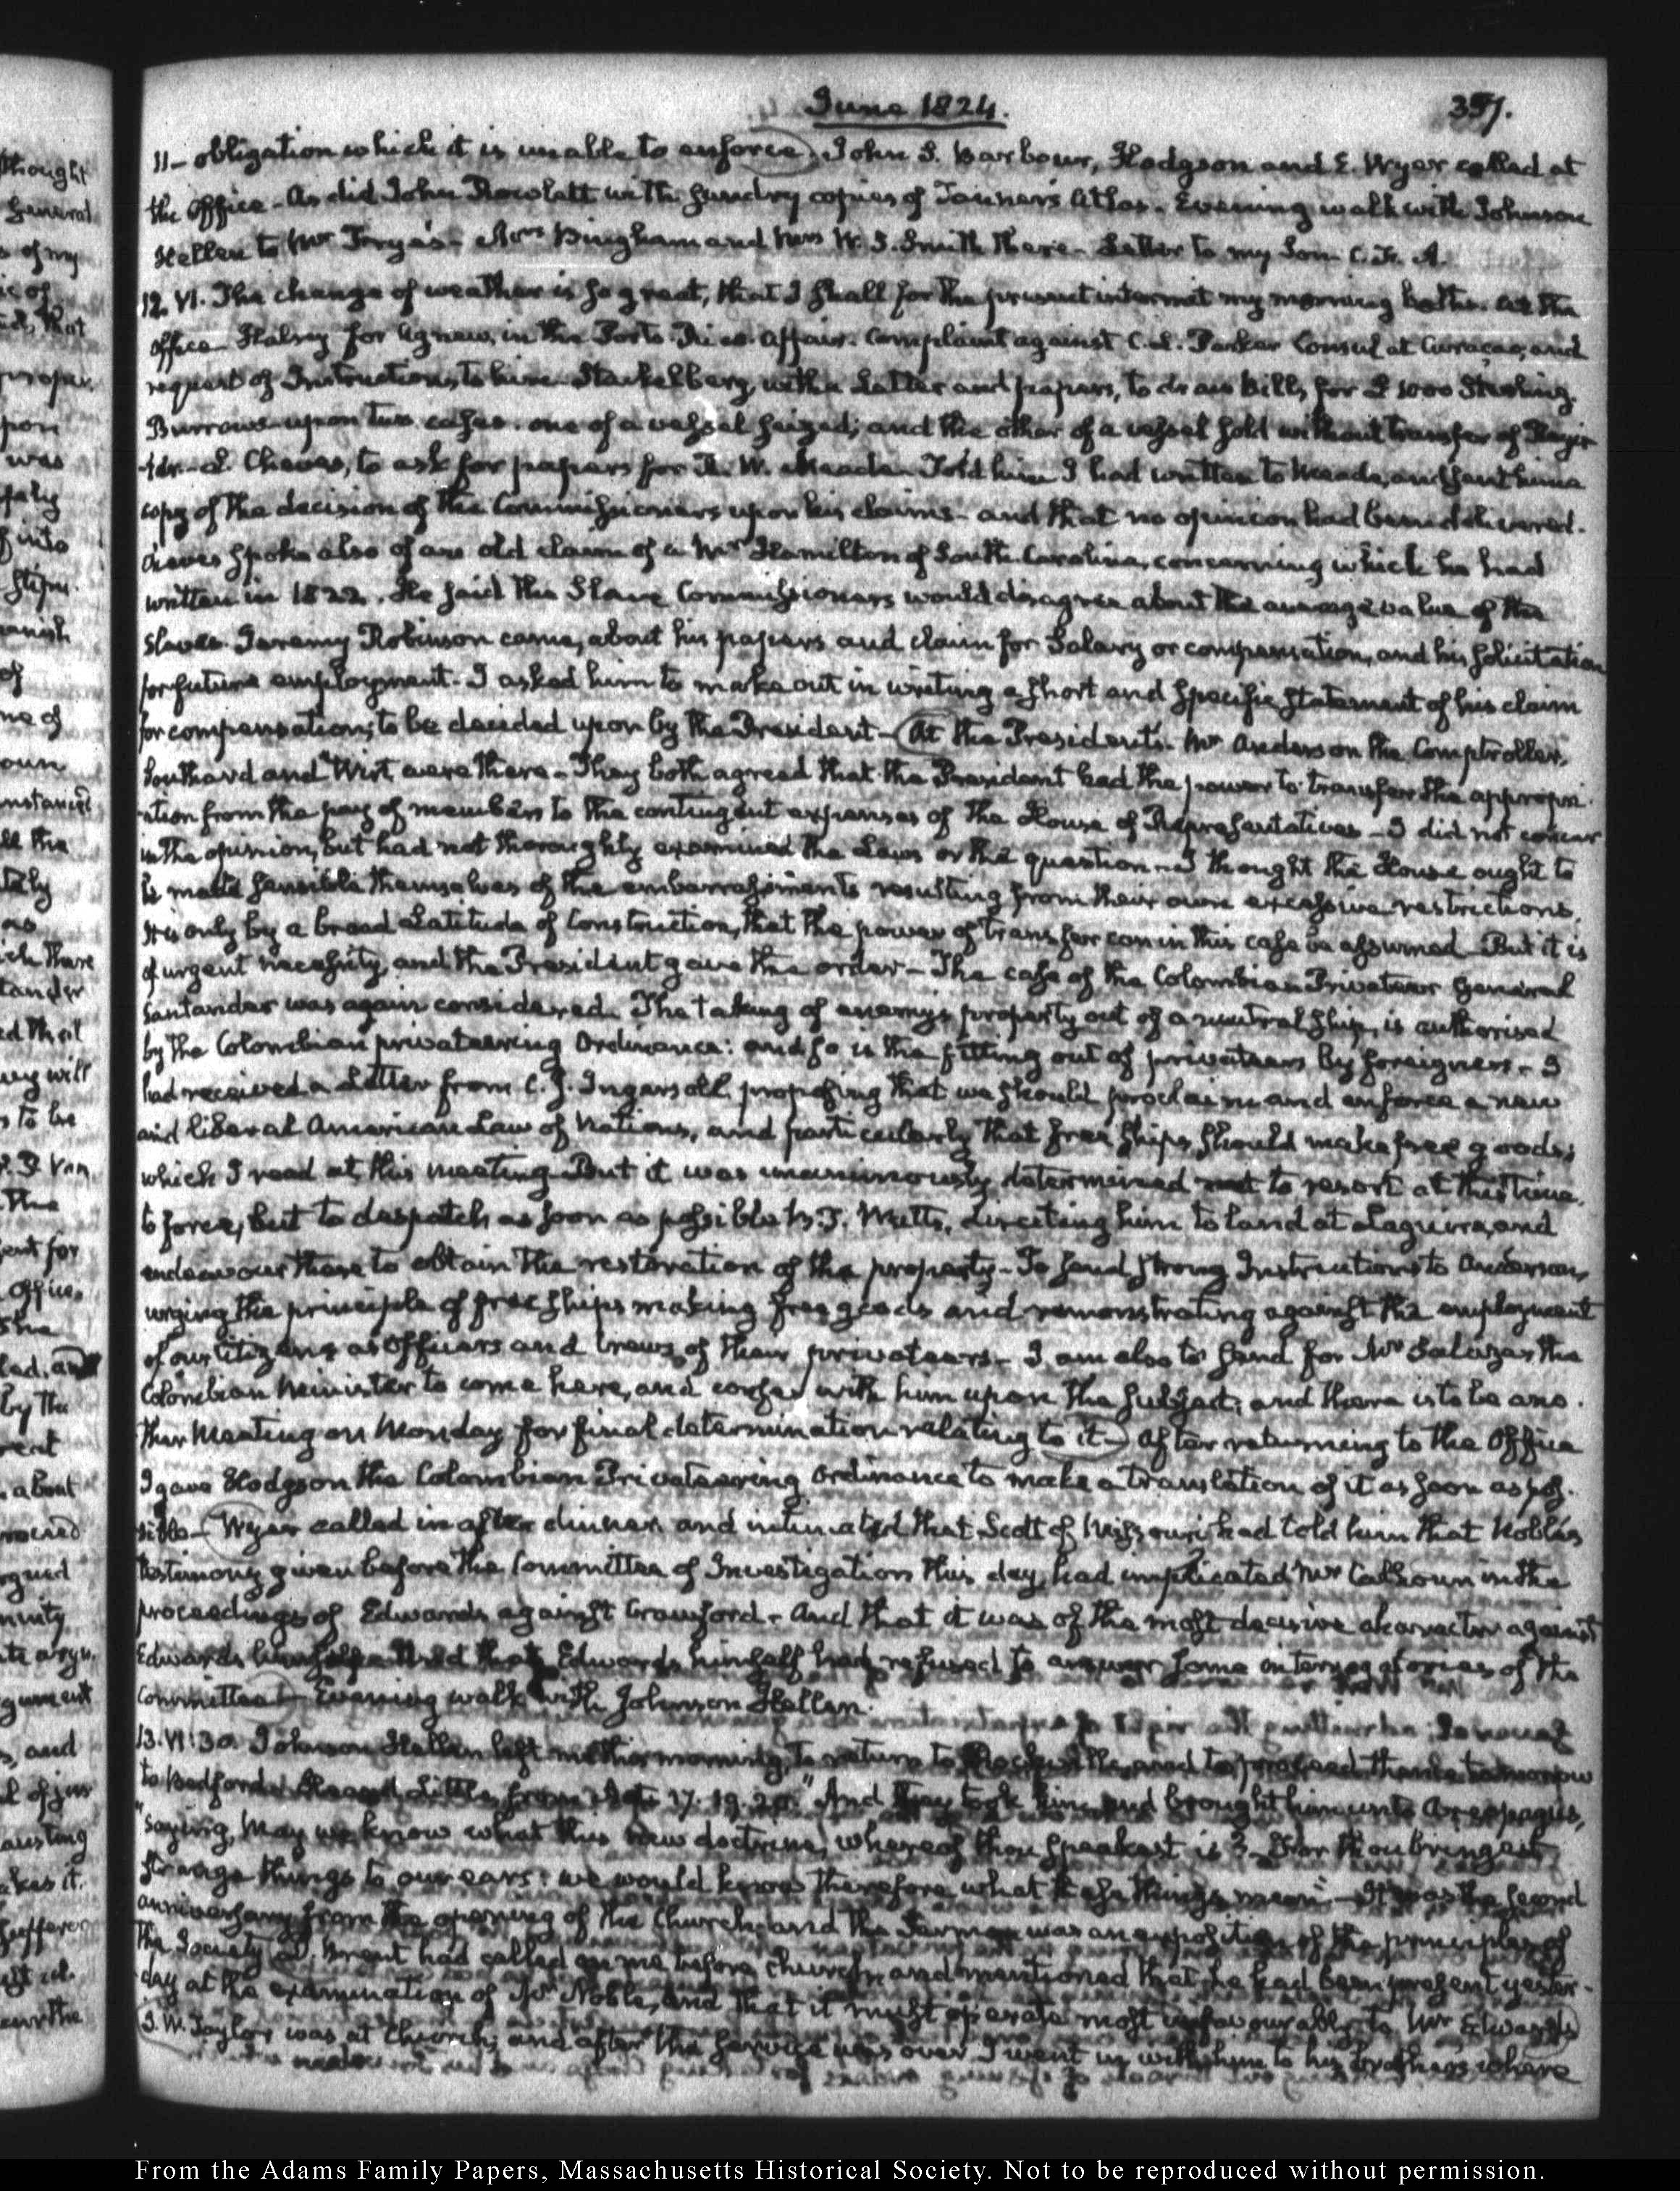 June 1824.
357.
11 - obligation which it is unable to enforce. John S. Barbour, Hodgson and E. Wyer called at
the Office - As did John Rowlett with sundry copies of Tanner's Atlas. Evening walk with Johnson
Hellen to Mr Frye's - Mrs Bingham and Mrs W. S. Smith there - Letter to my Son C. F. A.
12. VI. The change of weather is so great, that I shall for the present intermit my morning bath. At the
Office Halsey for Agnew, in the Porto-Rico affair. Complaint against C. L. Parker Consul at Curaçao, and
request of Instructions to him. Stackelberg, with a Letter and papers, to draw bills for £1000 Sterling.
Burrows upon two cases. one of a vessel seized; and the other of a vessel sold without transfer of Regis-
-ter - L. Cheves, to ask for papers for R. W. Meade. Told him I had written to Meade, and sent him a
copy of the decision of the Commissioners upon his claims - and that no opinion had been delivered.
Cheves spoke also of an old claim of a Mr Hamilton of South-Carolina, concerning which he had
written in 1822. He said the Slave Commissioners would disagree about the average value of the
Slaves. Jeremy Robinson came, about his papers and claim for Salary or compensation, and his solicitation
for future employment. I asked him to make out in writing a short and specific statement of his claim
for compensation; to be decided upon by the President - At the President's. Mr Anderson the Comptroller,
Southard and Wirt were there - They both agreed that the President had the power to transfer the appropri-
-ation from the pay of members to the contingent expenses of the House of Representatives - I did not concur
in the opinion, but had not thoroughly examined the Laws or the question - I thought the House ought to
be made sensible themselves of the embarrassments resulting from their own excessive restrictions.
It is only by a broad Latitude of Construction, that the power of transfer can in this case be assumed - But it is
of urgent necessity, and the President gave the order - The case of the Colombian Privateer General
Santander was again considered. The taking of enemy's property out of a neutral ship, is authorised
by the Colombian privateering Ordinance: and so is the fitting out of privateers by foreigners - I
had received a Letter from C. J. Ingersoll proposing that we should proclaim and enforce a new
and liberal American Law of Nations, and particularly that free ships should make free goods;
which I read at this meeting. But it was unanimously determined not to resort at this time
to force, but to despatch as soon as possible directing him to land at Laguira, and
endeavour there to obtain the restoration of the property - To send strong Instructions to Anderson,
urging the principle of free ships making free goods and remonstrating against the employment
of our Citizens as Officers and Crews of their privateers - I am also to send for Mr Salazar the
Colombian Minister to come here, and confer with him upon the subject; and there is to be ano-
ther Meeting on Monday for final determination relating to it - After returning to the Office
I gave Hodgson the Colombian Privateering Ordinance to make a translation of it as soon as pos-
sible - Wyer called in after dinner and intimated that Scott of Missouri had told him that Noble's
testimony given before the Committee of Investigation this day, had implicated Mr Calhoun in the
proceedings of Edwards against Crawford - And that it was of the most decisive character against
Edwards himself and that Edwards himself had refused to answer some interrogatories of the
Committee - Evening walk with Johnson Hellen.
13. VI:30. Johnson Hellen left me this morning, to return to Rockville, and to proceed thence tomorrow
to Bedford. Heard Little from Acts 17. 19. 20. "And they took him, and brought him unto Areopagus,
"saying, May we know what this new doctrine, whereof thou speakest is? For thou bringest
strange things to our ears: we would know therefore what these things mean" - It was the second
anniversary from the opening of the Church; and the Sermon was an exposition of the principles of
the Society. Brent had called on me before church; and mentioned that he had been present yester-
day at the examination of Mr Noble, and that it must operate most unfavourably to Mr Edwards
J. W. Taylor was at Church; and after the service was over I went in with him to his brothers where
From the Adams Family Papers, Massachusetts Historical Society. Not to be reproduced without permission.